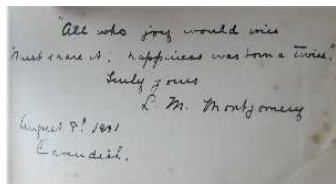 "All who joy would win
Must share it, happiness was born a twin."
Truly yours
L. M. Montgomery
August 8th 1931
Cavendish.